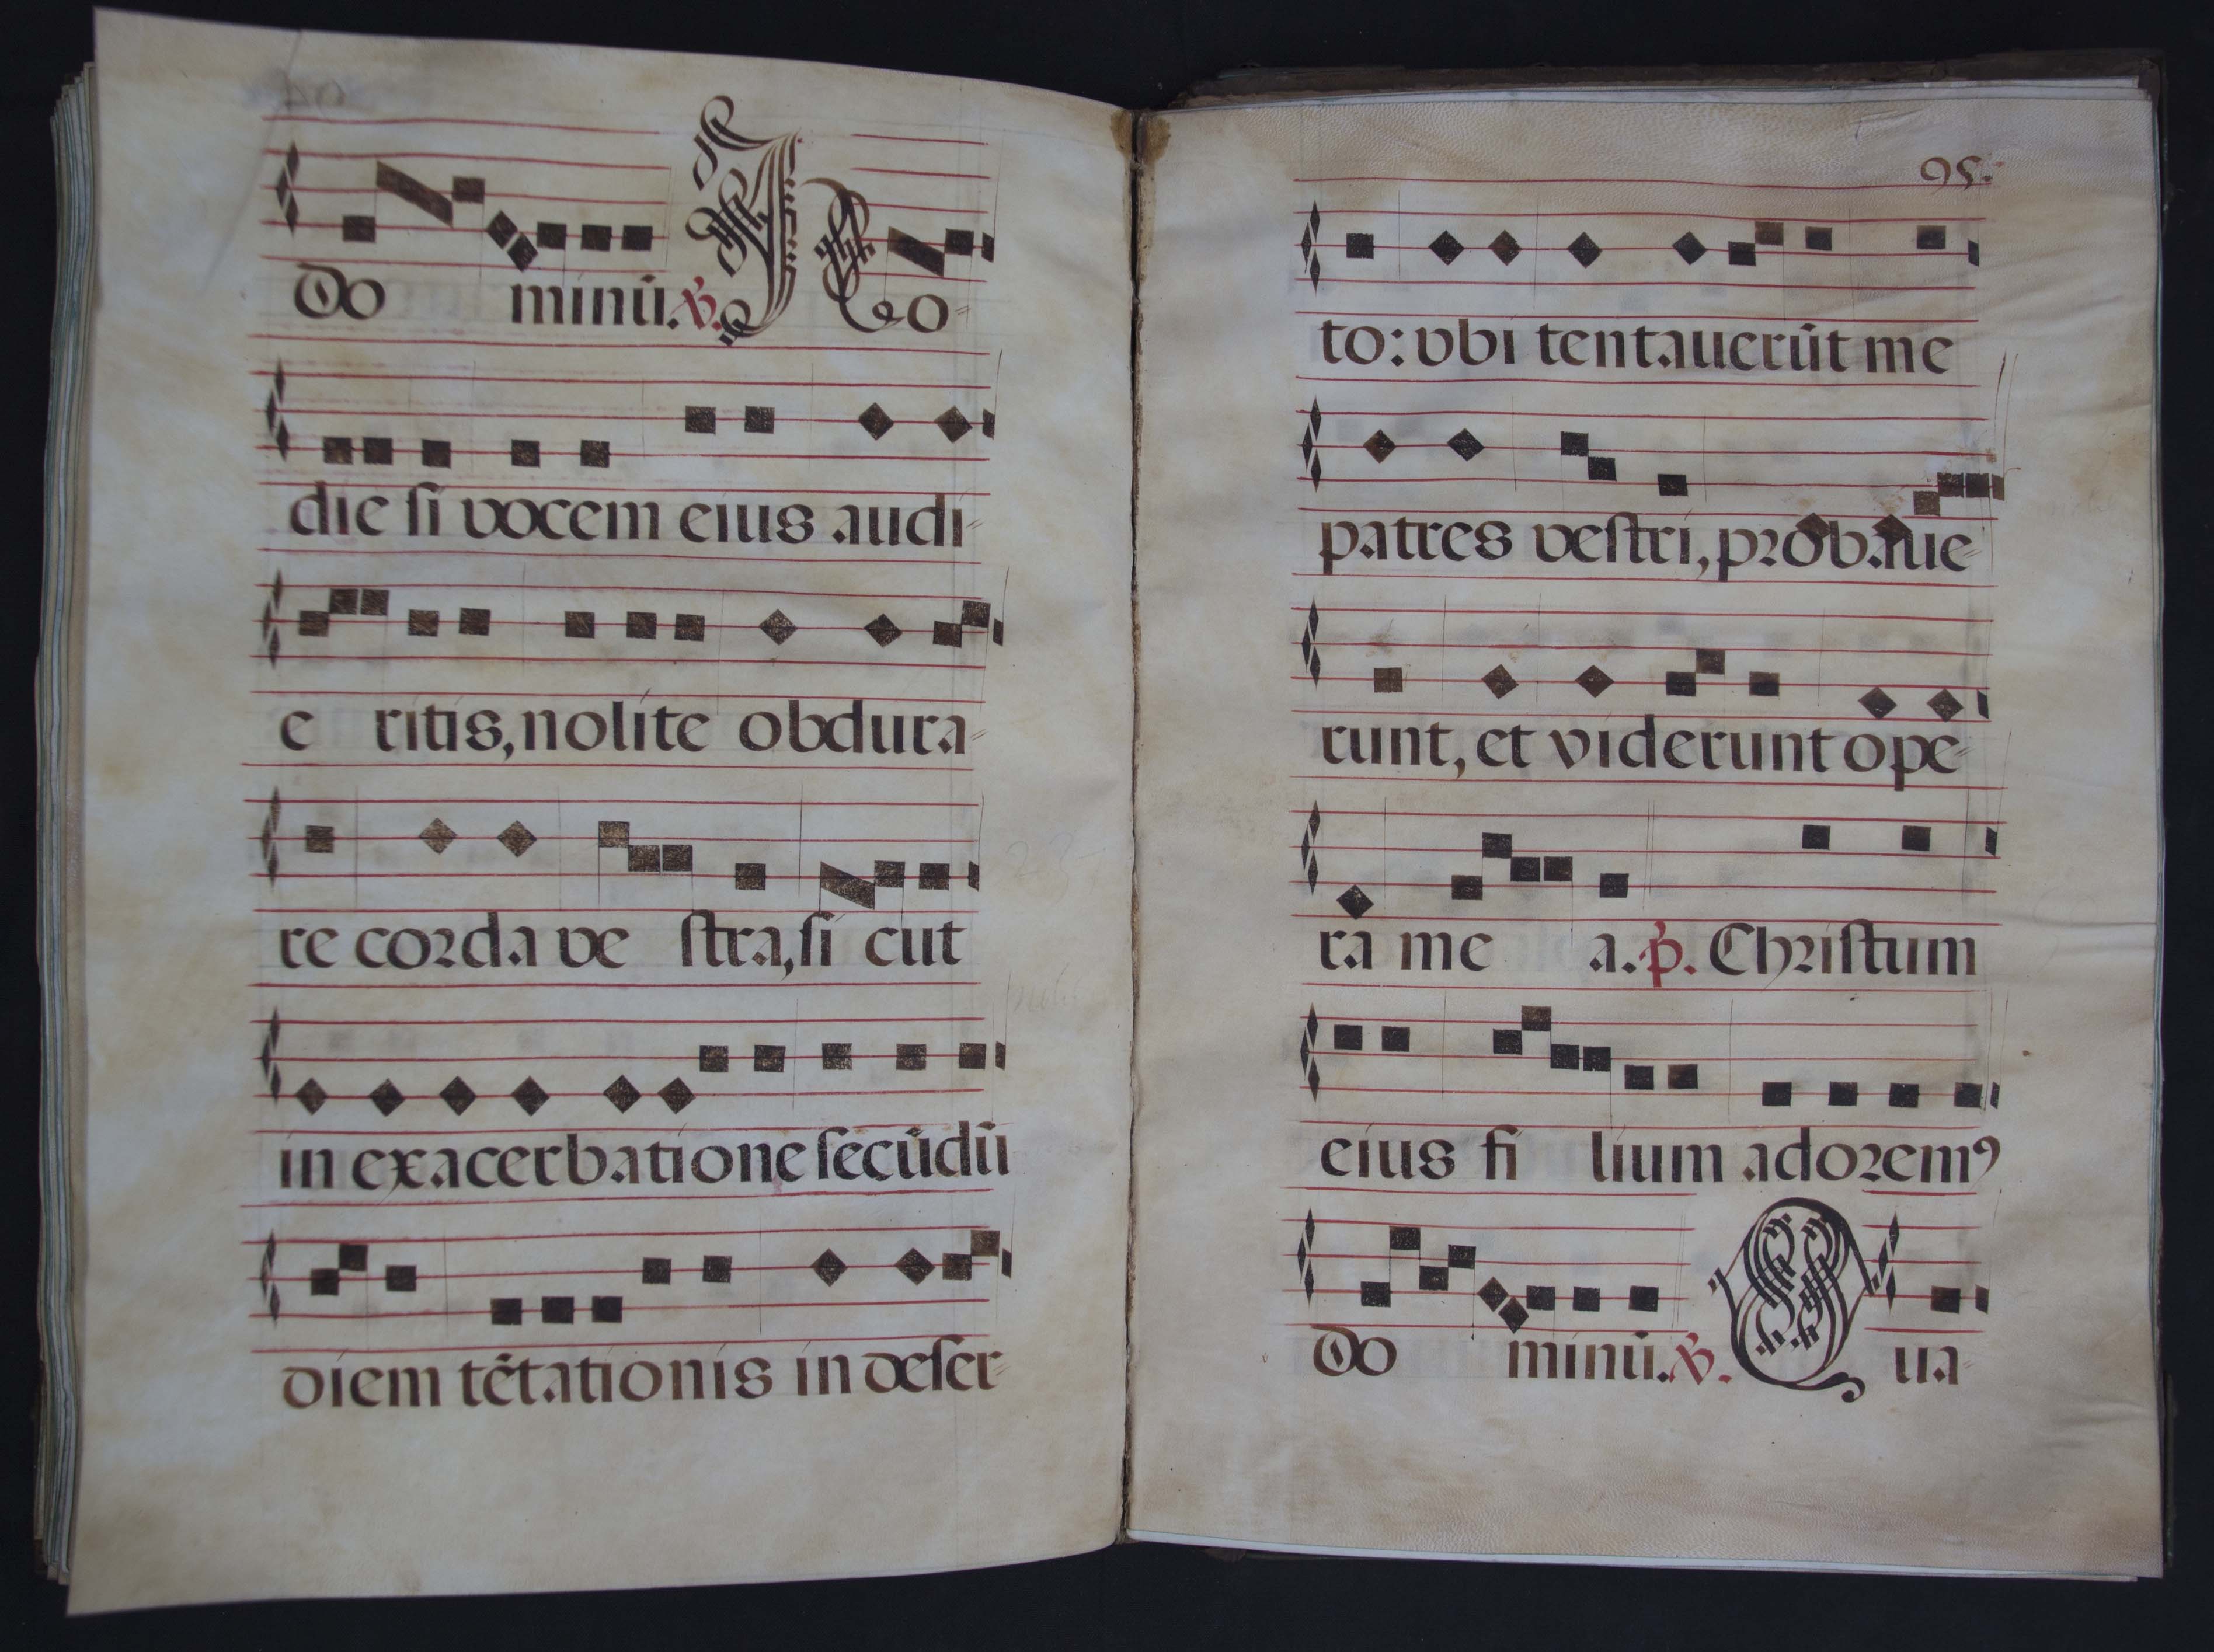 do minū. ℣. Ho-
die ſi vocem eius audi-
e ritis, nolite obdura-
re corda ve ſtra, ſi cut
in exacerbatione ſecūdū
diem tētationis in deſer-
95.
to: vbi tentauerūt me
patres veſtri, probaue-
runt, et viderunt ope-
ra me a. p̄. Chriſtum
eius fi lium adoremꝰ
do minū. ℣. Qua-